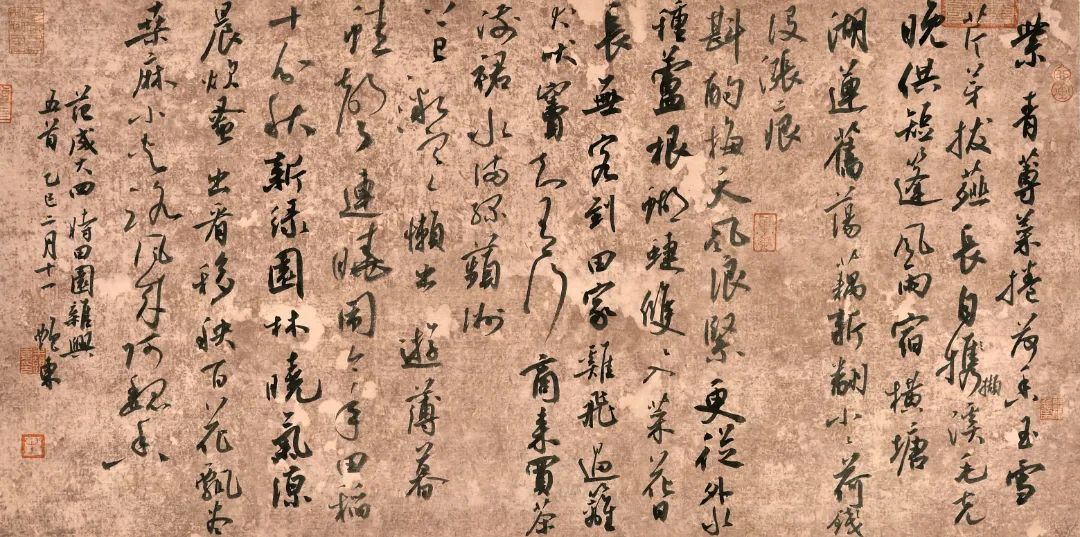 紫青蓴菜捲荷香玉雪
芹芽拔薤長自攜溪毛充
擷
晚供短篷風雨宿橫塘
湖蓮舊蕩藕新翻小小荷錢
没漲痕
斟酌梅天風浪緊更從外水
種蘆根蝴蝶雙雙入菜花日
長無客到田家雞飛過籬
犬吠竇知有行商來買茶
湔裙水滿綠蘋洲
上巳微寒懶出遊薄暮
蛙聲連曉鬧今年田稻
十分秋新綠園林曉氣涼
晨炊蚤出看移秧百花飄盡
桑麻小夾路風來阿魏香
范成大四時田園雜興
五首乙巳二月十一東